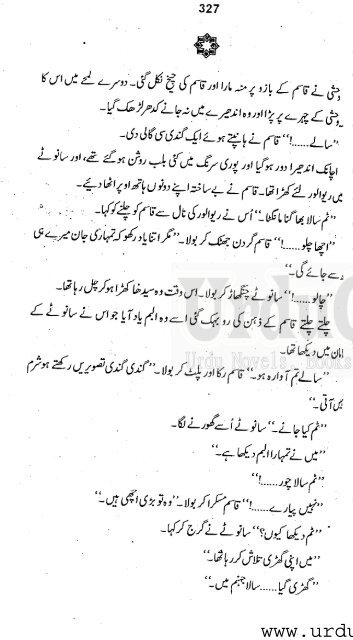 327
وحشی نے قاسم کے بازو پر منہ مارا اور قاسم کی چیخ نکل گئی۔ دوسرے لمحے میں اس کا
وحشی کے چہرے پر پڑا اور وہ اندھیرے میں نہ جانے کدھر لڑھک گیا۔
”سالے......!“ قاسم نے ہانپتے ہوئے ایک گندی سی گالی دی۔
اچانک اندھیرا دور ہو گیا اور پوری سرنگ میں کئی بلب روشن ہو گئے تھے، اور سانوٹے
میں ریوالور لئے کھڑا تھا۔ قاسم نے بے ساختہ اپنے دونوں ہاتھ اوپر اٹھا دیئے۔
”تم سالا بھاگنا مانگٹا۔“ اُس نے ریوالور کی نال سے قاسم کو چلنے کو کہا۔
”اچھا چلو......!“ قاسم گردن جھٹک کر بولا۔ ”مگر اتنا یاد رکھو کہ تمہاری جان میرے ہی
سے جائے گی۔“
”چالو......!“ سانوٹے چنگھاڑ کر بولا۔ اس وقت وہ سیدھا کھڑا ہو کر چل رہا تھا۔
چلتے چلتے قاسم کے ذہن کی رو بہک گئی اُسے وہ البم یاد آیا جو اس نے سانوٹے کے
میں دیکھا تھا۔
”سالے تم آوارہ ہو۔“ قاسم رکا اور پلٹ کر بولا۔ ”گندی گندی تصویریں رکھتے ہو شرم
آتی۔“
”تم کیا جانے۔“ سانوٹے اُسے گھورنے لگا۔
”میں نے تمہارا البم دیکھا ہے۔“
”تم سالا چور......!“
”نہیں پیارے......!“ قاسم مسکرا کر بولا۔ ”وہ تو بڑی اچھی ہیں۔“
”تم دیکھا کیوں؟“ سانوٹے نے گرج کر کہا۔
”میں اپنی گھڑی تلاش کر رہا تھا۔“
”گھڑی گیا...... سالا جہنم میں۔“
Urdu Novels Books
www.urdu